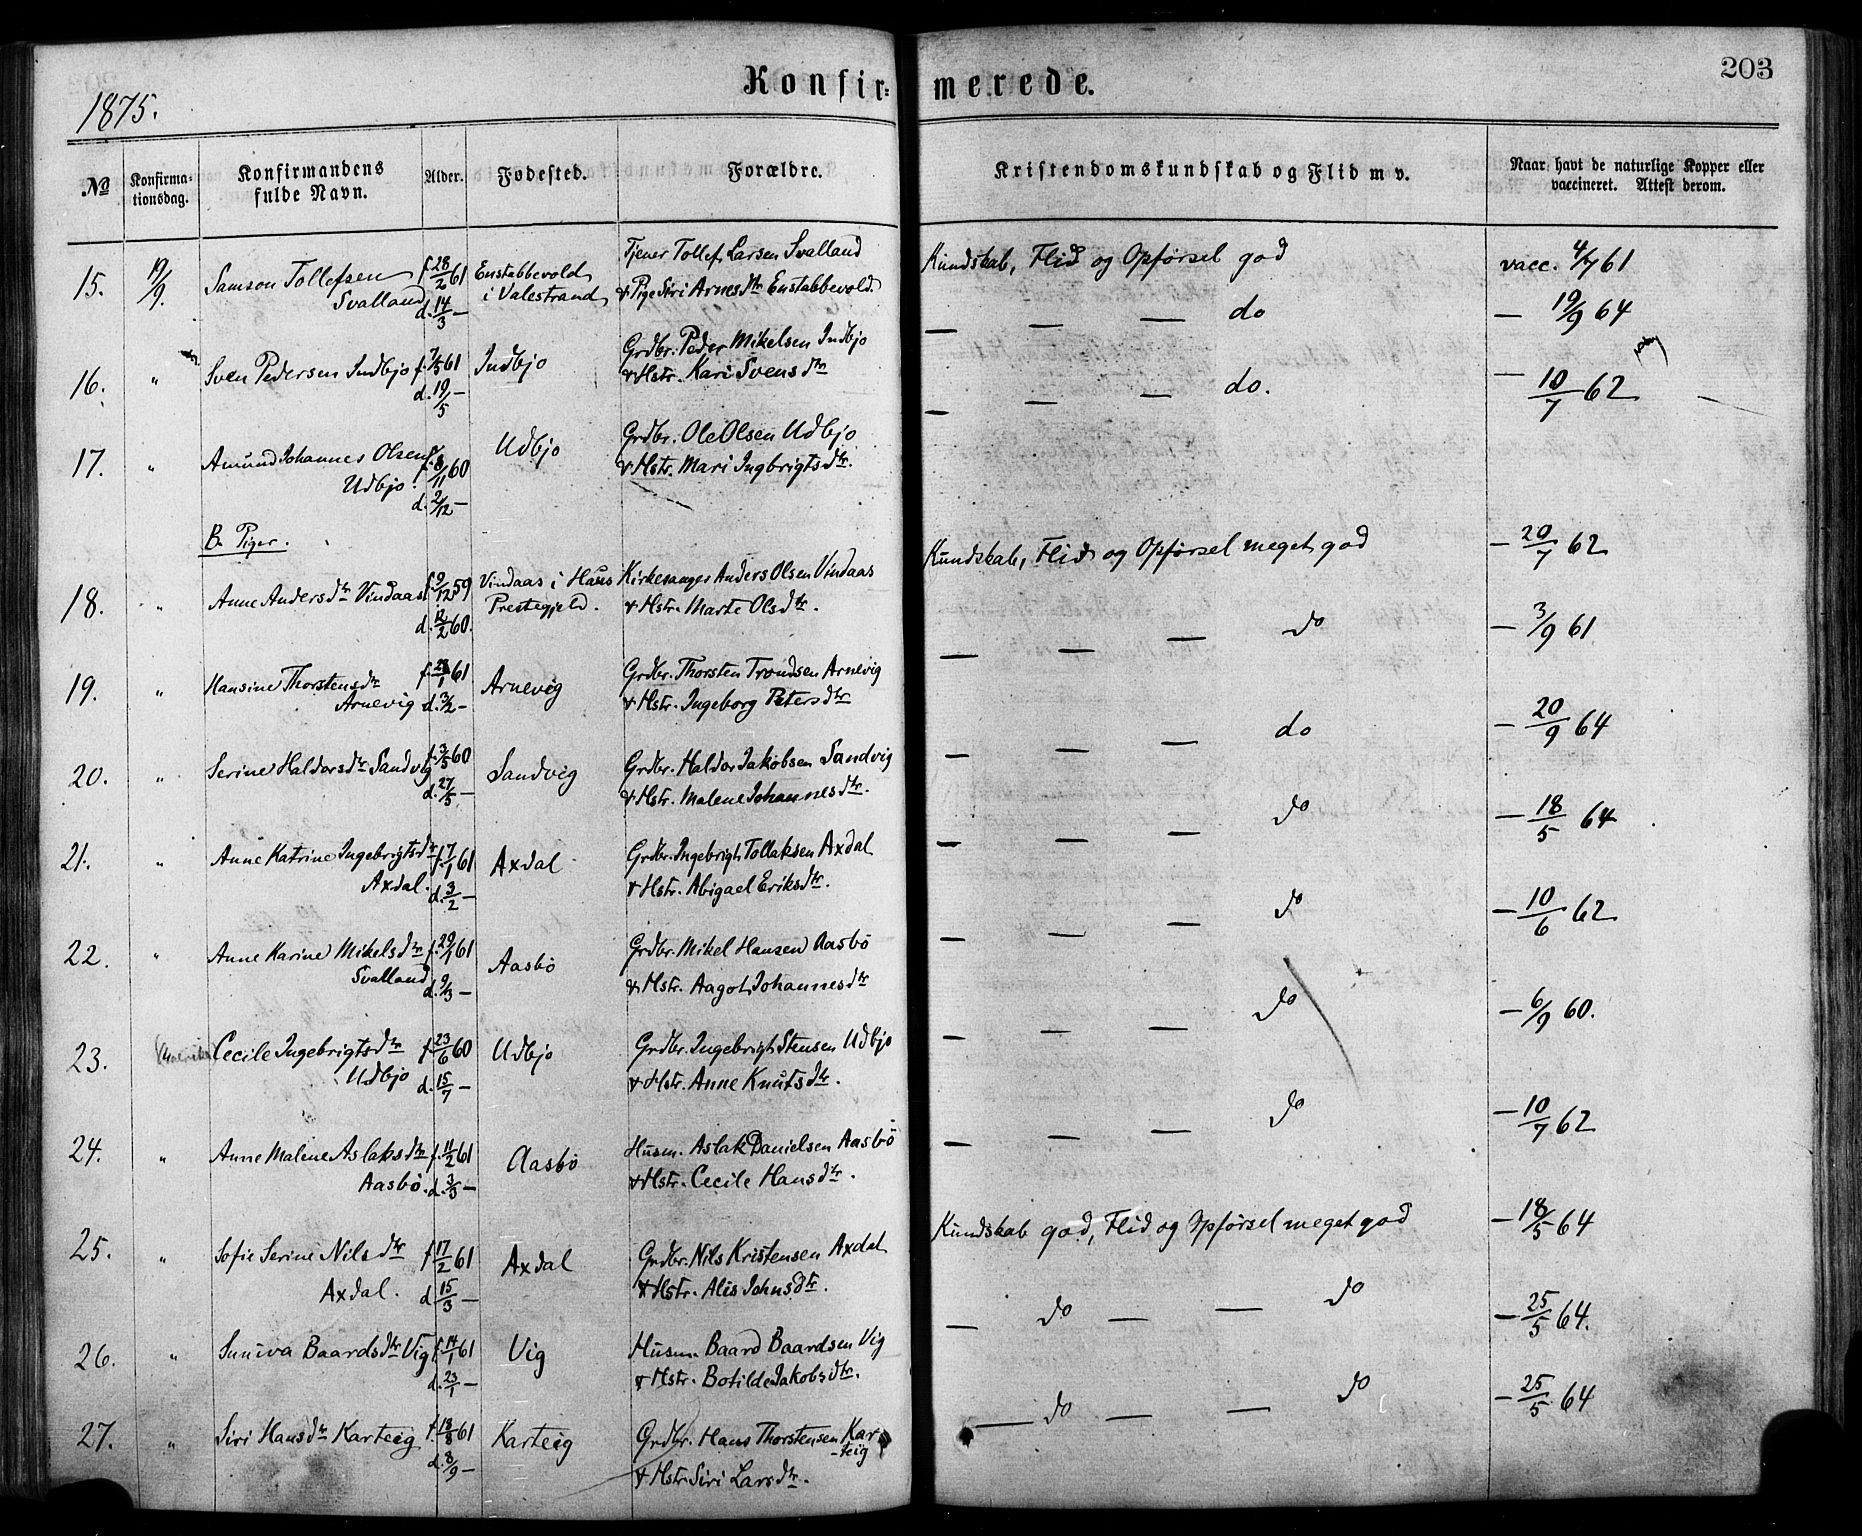 Konfir=merede. 203
1875.
No Konfirma-tionsdag. Konfirmandens fulde Navn. Alder. Fødested. Forældre. Kristendomskundskab og Flid m v. Naar havt de naturlige Kopper eller vaccineret. Attest derom.
15. 19/9. Samson Tollefsen f. 28/2 61 Enstabbevold Tjener Tollef Larsen Svalland Kundskab, Flid og Opførsel god vacc. 4/7 61
Svalland d. 14/3 — i Valestrand & Pige Siri Arnesdtr Enstabbevold.
16. " Sven Pedersen Indbjo f. 7/5 61 Indbjo Grdbr. Peder Mikelsen Indbjo — — — do — 19/9 64
d. 19/5 — & Hstr. Kari Svensdtr
17. " Amund Johannes Olsen f. 8/11 60 Udbjo Grdbr. Ole Olsen Udbjo — — — do. — 10/7 62
Udbjo. d. 2/12 — & Hstr. Mari Ingbrigtsdtr.
B. Piger.
18. " Anne Andersdtr Vindaas f. 9/12 59 Vindaas i Haus Kirkesanger Anders Olsen Vindaas Kundskab, Flid og Opførsel meget god — 20/7 62
d. 12/2 60. Prestegjeld. & Hstr. Marte Olsdtr.
19. " Hansine Thorstensdtr f. 23/1 61 Arnevig Grdbr. Thorsten Trondsen Arnevig — — — do — 3/9 61
Arnevig d. 3/2 — & Hstr. Ingeborg Petersdtr
20. " Serine Haldorsdtr Sandvig f. 3/5 60 Sandvig Grdbr. Haldor Jakobsen Sandvig — — — do — 20/9 64
d. 27/5 — & Hstr. Malene Johannesdtr.
21. " Anne Katrine Ingebrigtsdtr f. 17/1 61 Axdal Grdbr. Ingebrigt Tollaksen Axdal — — — do — 18/5 64
Axdal. d. 3/2 — & Hstr. Abigael Eriksdtr.
22. " Anne Karine Mikelsdtr f. 29/1 61 Aasbø Grdbr. Mikel Hansen Aasbø — — — do — 10/6 62
Svalland d. 9/3 — & Hstr. Aagot Johannesdtr
23. Cecile Ingebrigtsdtr f. 23/6 60 Udbjo Grdbr. Ingebrigt Stensen Udbjo — — — do — 6/9 60.
Udbjo d. 15/7 — & Hstr. Anne Knutsdtr.
24. " Anne Malene Aslaksdtr f. 11/2 61 Aasbø Husm. Aslak Danielsen Aasbø — — — do — 10/7 62
Aasbø. d. 3/3 — & Hstr. Cecile Hansdtr.
25. " Sofie Serine Nilsdtr f. 17/2 61 Axdal Grdbr. Nils Kristensen Axdal Kundskab god, Flid og Opførsel meget god — 18/5 64
Axdal. d. 15/3 — & Hstr. Alis Johnsdtr.
26. " Suniva Baardsdtr Vig f. 14/1 61 Vig Husm. Baard Baardsen Vig — do — do — 25/5 64.
d. 23/1 — & Hstr. Botilde Jakobsdtr.
27. " Siri Hansdtr Karteig f. 18/8 61 Karteig Grdbr. Hans Thorstensen Kar- — do — — do — 25/5 64
d. 8/9 — -teig
& Hstr. Siri Larsdtr.